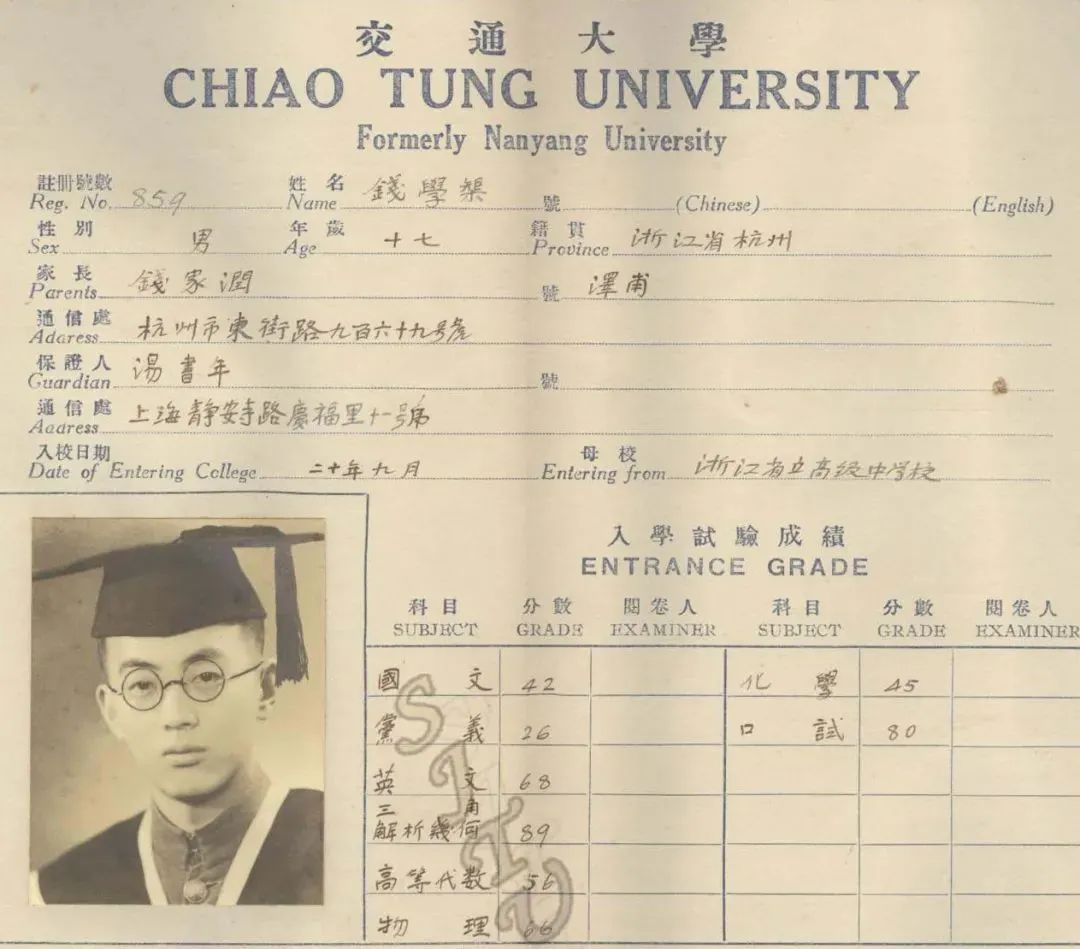 交通大學
CHIAO TUNG UNIVERSITY
Formerly Nanyang University
註冊號數 姓名 號
Reg. No. 859 Name 錢學榘 (Chinese) (English)
性別 年歲 籍貫
Sex 男 Age 十七 Province 浙江省杭州
家長 號
Parents 錢家潤 澤甫
通信處
Address 杭州市東街路九百六十九號
保證人 號
Guardian 湯書年
通信處
Address 上海靜安寺路慶福里十一號
入校日期 母校
Date of Entering College 二十年九月 Entering from 浙江省立高級中学校
入學試驗成績
ENTRANCE GRADE
科目 分數 閱卷人 科目 分數 閱卷人
SUBJECT GRADE EXAMINER SUBJECT GRADE EXAMINER
國文 42 化學 45
黨義 26 口試 80
英文 68
三角
解析幾何 89
高等代数 56
物理 66
SJTU